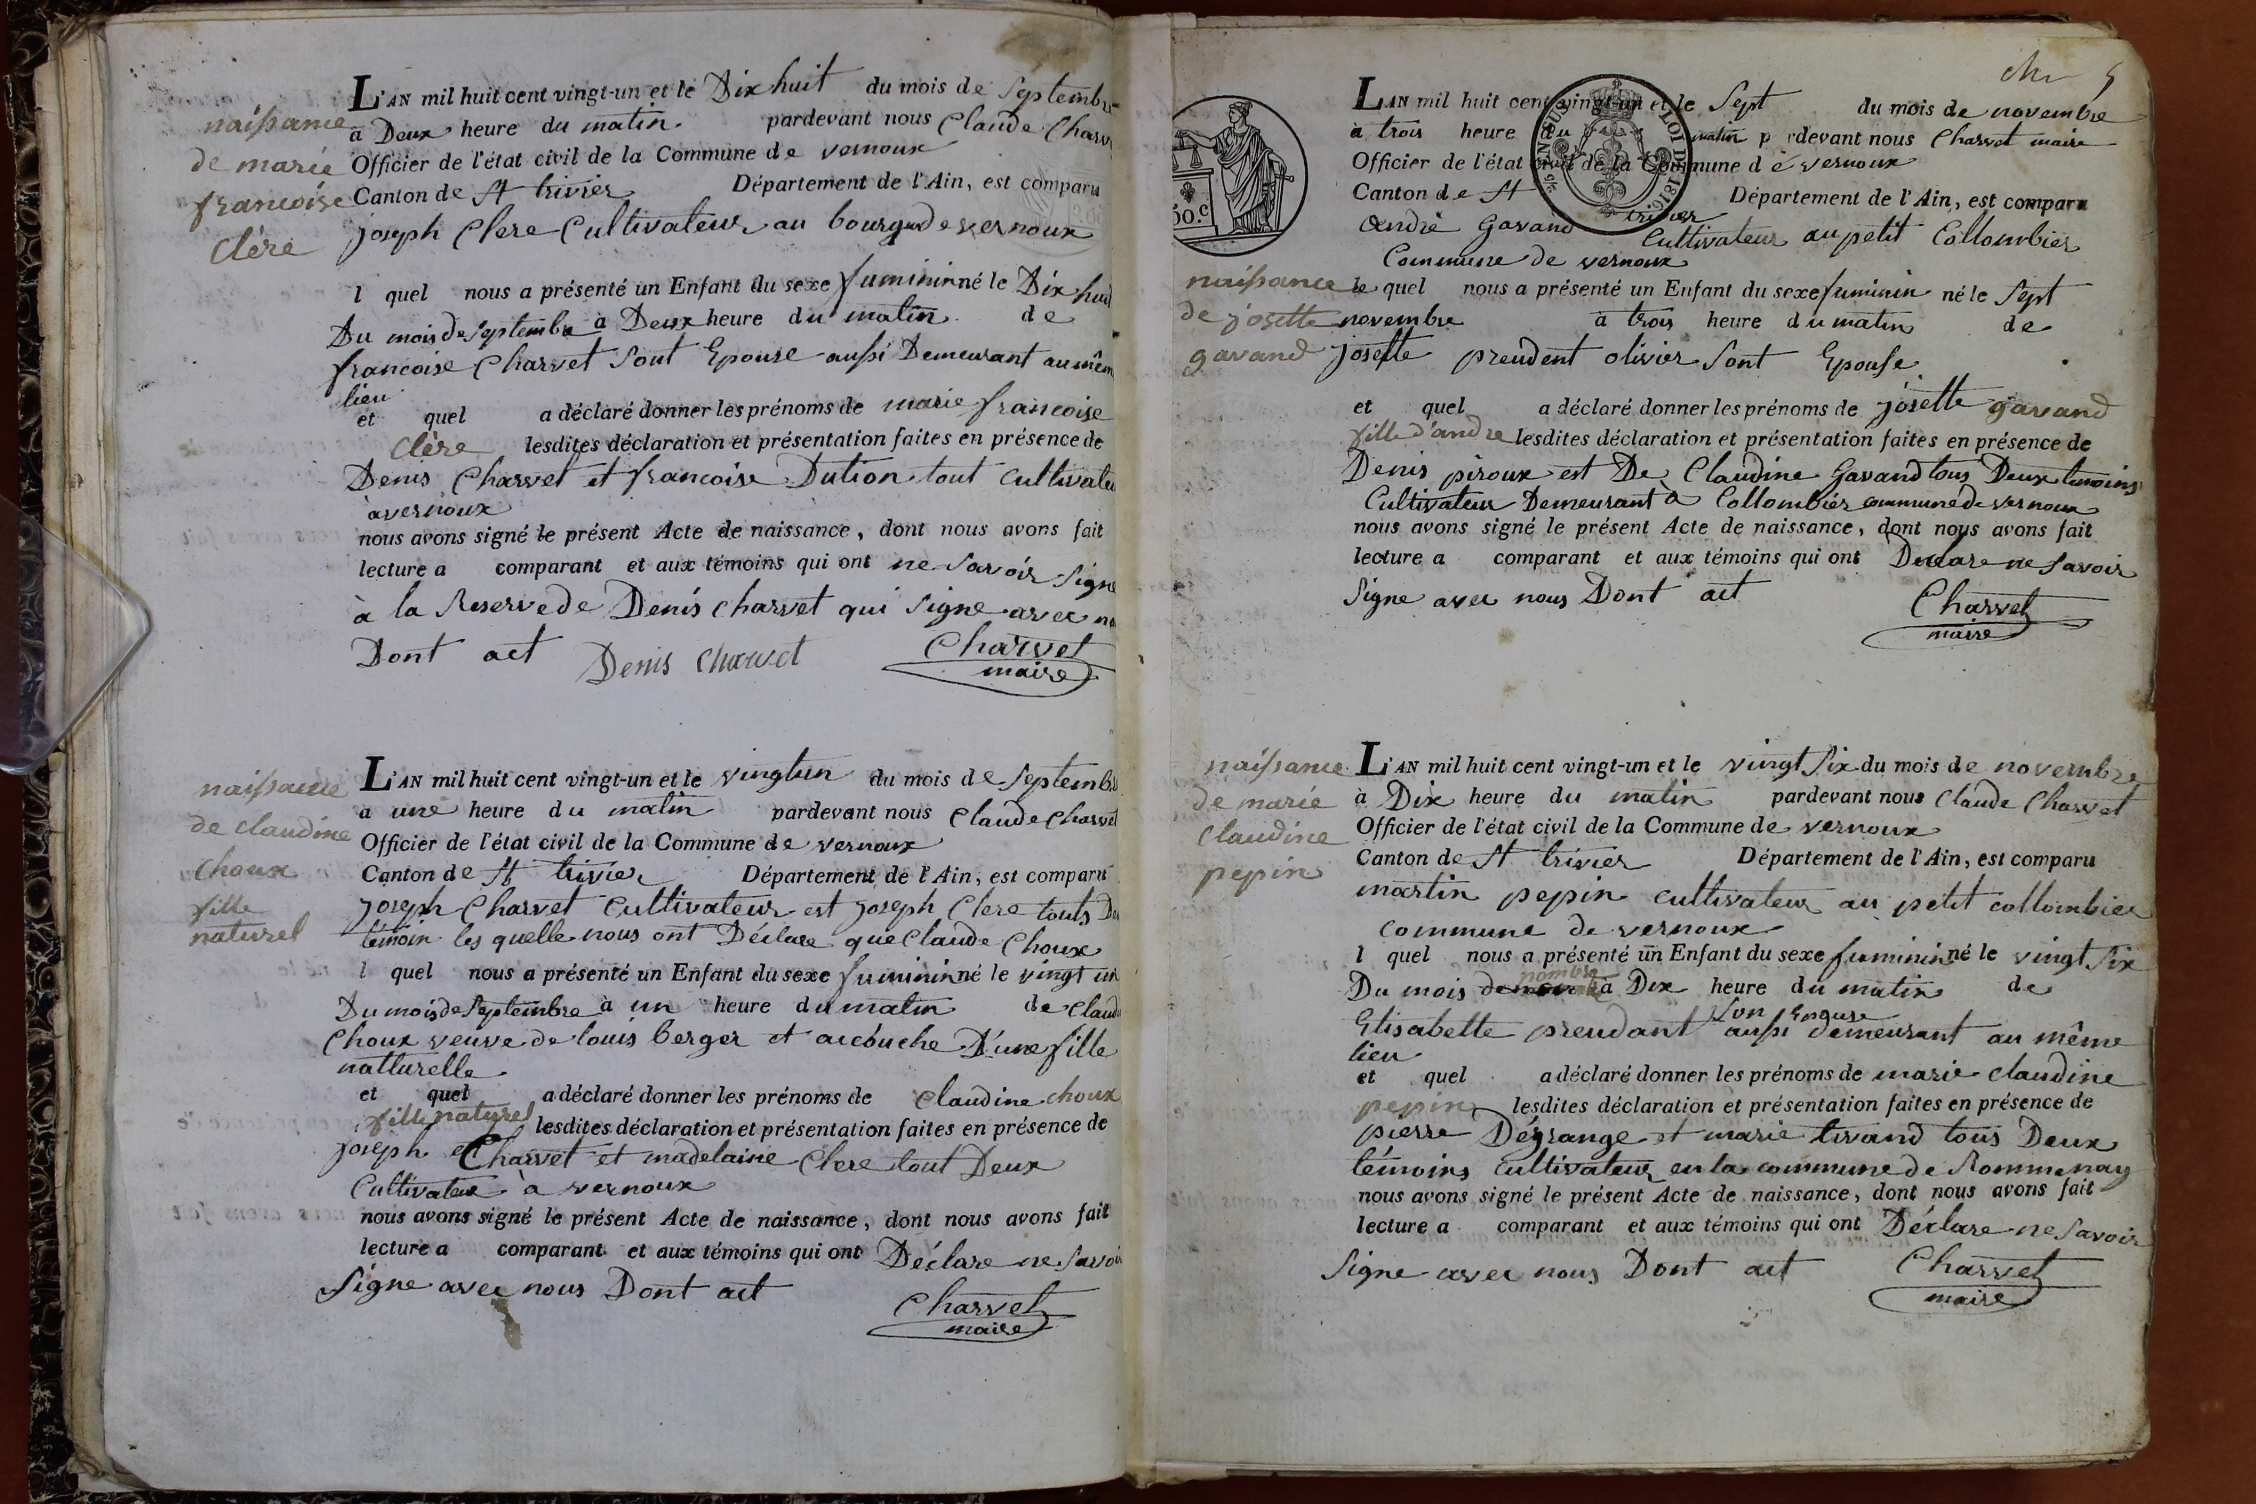 naissance
de marie
francoise
Clère
L'AN mil huit cent vingt-un et le Dix huit du mois de Septembre
à Deux heure du matin pardevant nous Claude Charv
Officier de l'état civil de la Commune de vernoux
Canton de St trivier Département de l'Ain, est comparu
joseph Clere Cultivateur au bourg de vernoux
l quel nous a présenté un Enfant du sexe fuminin né le Dix huit
Du mois de Septembre à Deux heure du matin de
francoise Charvet Sont Epouse aussi Demeurant au mêm
lieu
et quel a déclaré donner les prénoms de marie francoise
Clère lesdites déclaration et présentation faites en présence de
Denis Charvet et francoise Dution tout Cultivateu
à vernoux
nous avons signé le présent Acte de naissance, dont nous avons fait
lecture a comparant et aux témoins qui ont ne Savoir Signe
à la Reserve de Denis Charvet qui Signe avec no
Dont act Denis Charvet Charvet
maire
naissance
de claudine
choux
fille
naturel
L'AN mil huit cent vingt-un et le vingtun du mois de Septembre
a une heure du matin pardevant nous Claude Charvet
Officier de l'état civil de la Commune de vernoux
Canton de St trivier Département de l'Ain, est comparu
joseph Charvet Cultivateur est joseph Clere touts De
témoin les quelle nous ont Déclare que Claude Choux
l quel nous a présenté un Enfant du sexe fuminin né le vingt un
Du mois de Septembre à un heure du matin de Claude
Choux veuve de louis berger et acouche D'une fille
natturelle
et quel a déclaré donner les prénoms de Claudine choux
fille naturel lesdites déclaration et présentation faites en présence de
joseph et Charvet et madelaine Clere tout Deux
Cultivateur à vernoux
nous avons signé le présent Acte de naissance, dont nous avons fait
lecture a comparant et aux témoins qui ont Déclare ne Savoir
Signe avec nous Dont act
Charvet
maire
5
L'AN mil huit cent vingt-un et le Sept du mois de novembre
à trois heure du matin p rdevant nous Charvet maire
Officier de l'état civil de la Commune de vernoux
Canton de St trivier Département de l'Ain, est comparu
André Gavand Cultivateur au petit Collombier
Commune de vernoux
50.C
LOI DE 1816
naissance
de josette
gavand
le quel nous a présenté un Enfant du sexe fuminin né le Sept
novembre à trois heure du matin de
josette prendent olivier Sont Epouse
et quel a déclaré donner les prénoms de josette gavand
fille d'andre lesdites déclaration et présentation faites en présence de
Denis piroux est De Claudine Gavand tous Deux temoins
Cultivateur Demeurant à Collombier commune de vernoux
nous avons signé le présent Acte de naissance, dont nous avons fait
lecture a comparant et aux témoins qui ont Declare ne Savoir
Signe avec nous Dont act Charvet
maire
naissance
de marie
claudine
pepin
L'AN mil huit cent vingt-un et le vingt Six du mois de novembre
à Dix heure du matin pardevant nous Claude Charvet
Officier de l'état civil de la Commune de vernoux
Canton de St trivier Département de l'Ain, est comparu
martin pepin cultivateur au petit collombier
commune de vernoux
l quel nous a présenté un Enfant du sexe fuminin né le vingt Six
Du mois de nombre à Dix heure du matin de
Elisabette prendant Son Epouse aussi demeurant au même
lieu
et quel a déclaré donner les prénoms de marie claudine
pepin lesdites déclaration et présentation faites en présence de
pierre Dégrange et marie tivand tous Deux
témoins Cultivateur en la commune de Rommenay
nous avons signé le présent Acte de naissance, dont nous avons fait
lecture a comparant et aux témoins qui ont Déclare ne Savoir
Signe avec nous Dont act Charvet
maire